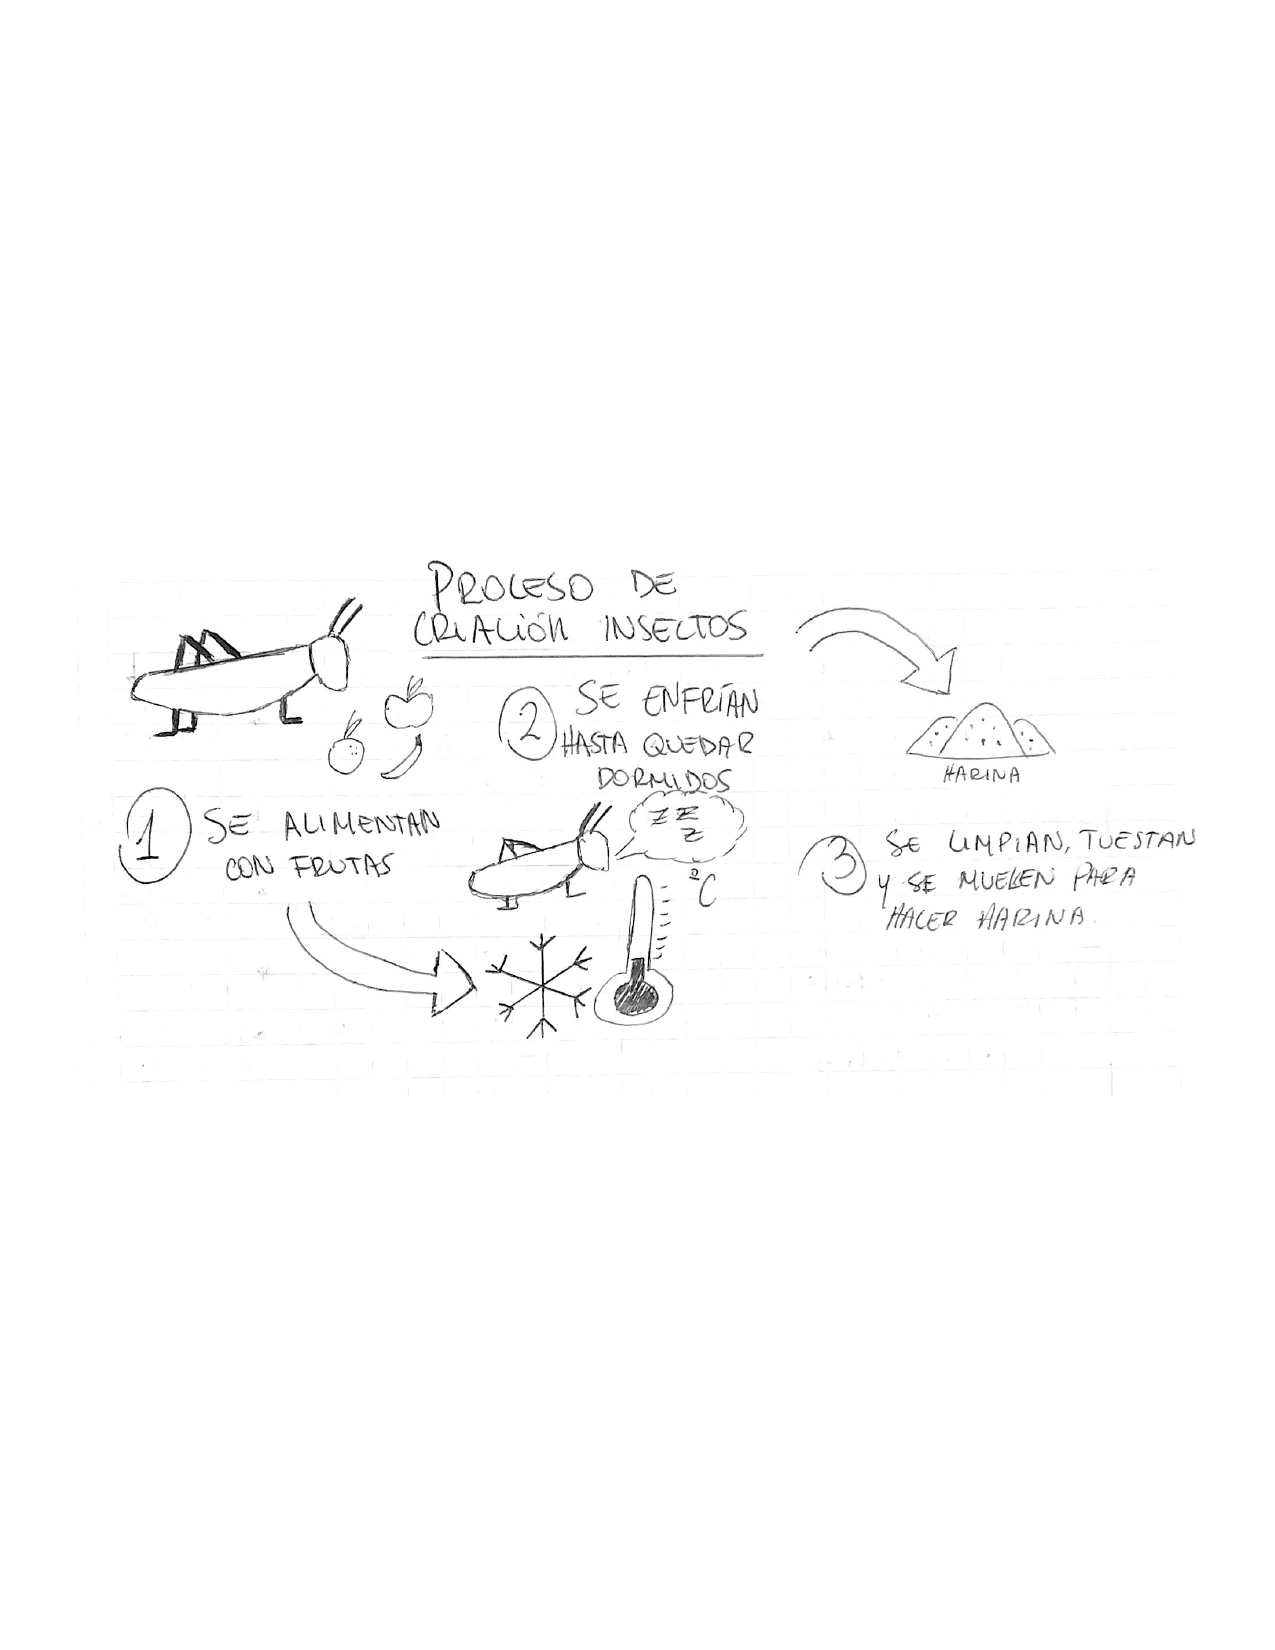 PROCESO DE
CRIACIÓN INSECTOS
1 SE ALIMENTAN
CON FRUTAS
2 SE ENFRÍAN
HASTA QUEDAR
DORMIDOS
Z Z
Z
°C
HARINA
3 SE LIMPIAN, TUESTAN
Y SE MUELEN PARA
HACER HARINA.